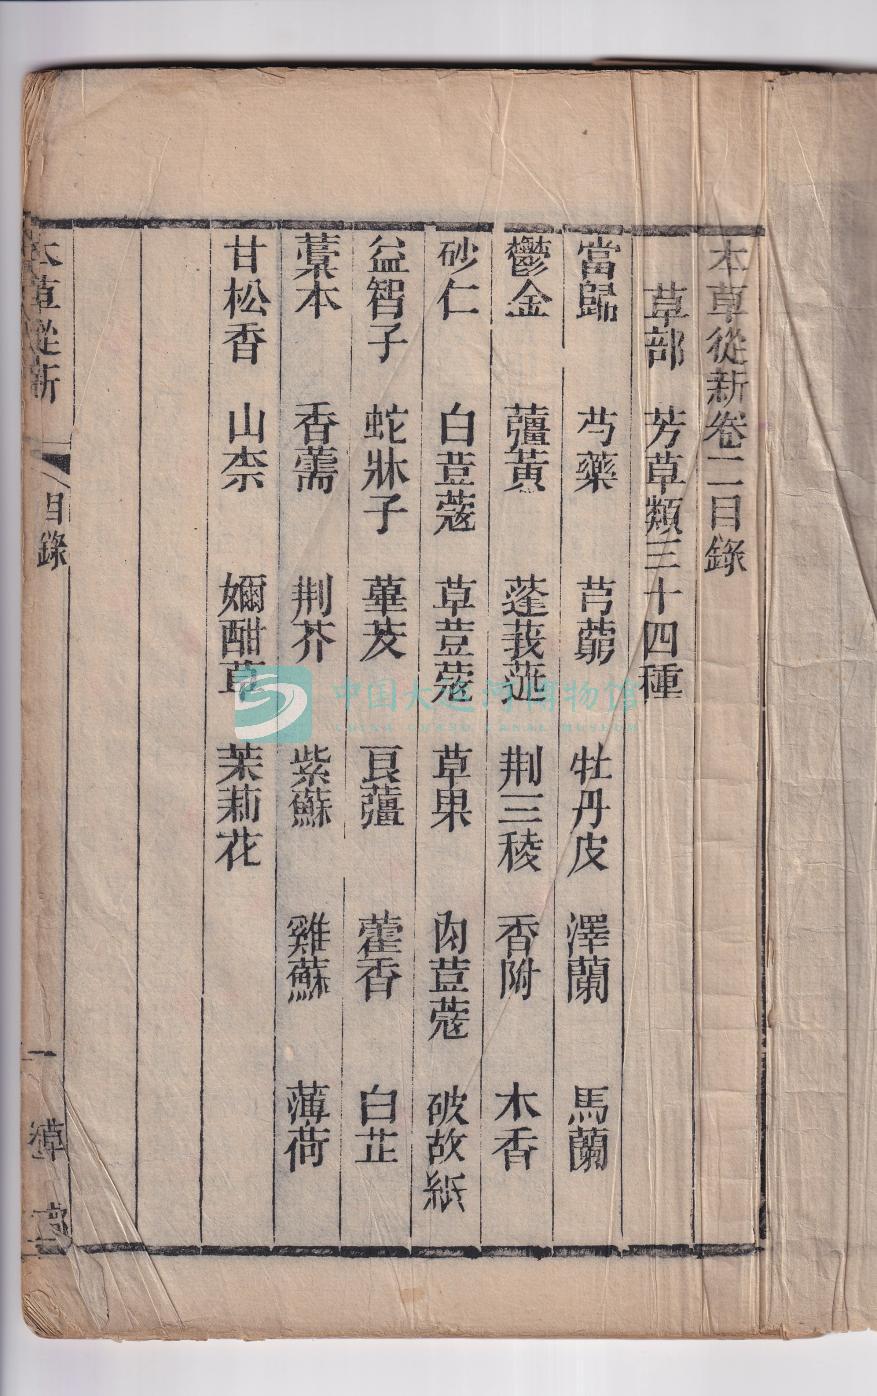 本草從新卷二目錄
草部 芳草類三十四種
當歸 芍藥 芎藭 牡丹皮 澤蘭 馬蘭
鬱金 薑黃 蓬莪蒁 荆三稜 香附 木香
砂仁 白荳蔻 草荳蔻 草果 肉荳蔻 破故紙
益智子 蛇牀子 蓽茇 良薑 藿香 白芷
藁本 香薷 荆芥 紫蘇 雞蘇 薄荷
甘松香 山柰 草 茉莉花
本草從新 目錄 一 草部
中国大运河博物馆
CHINA GRAND CANAL MUSEUM